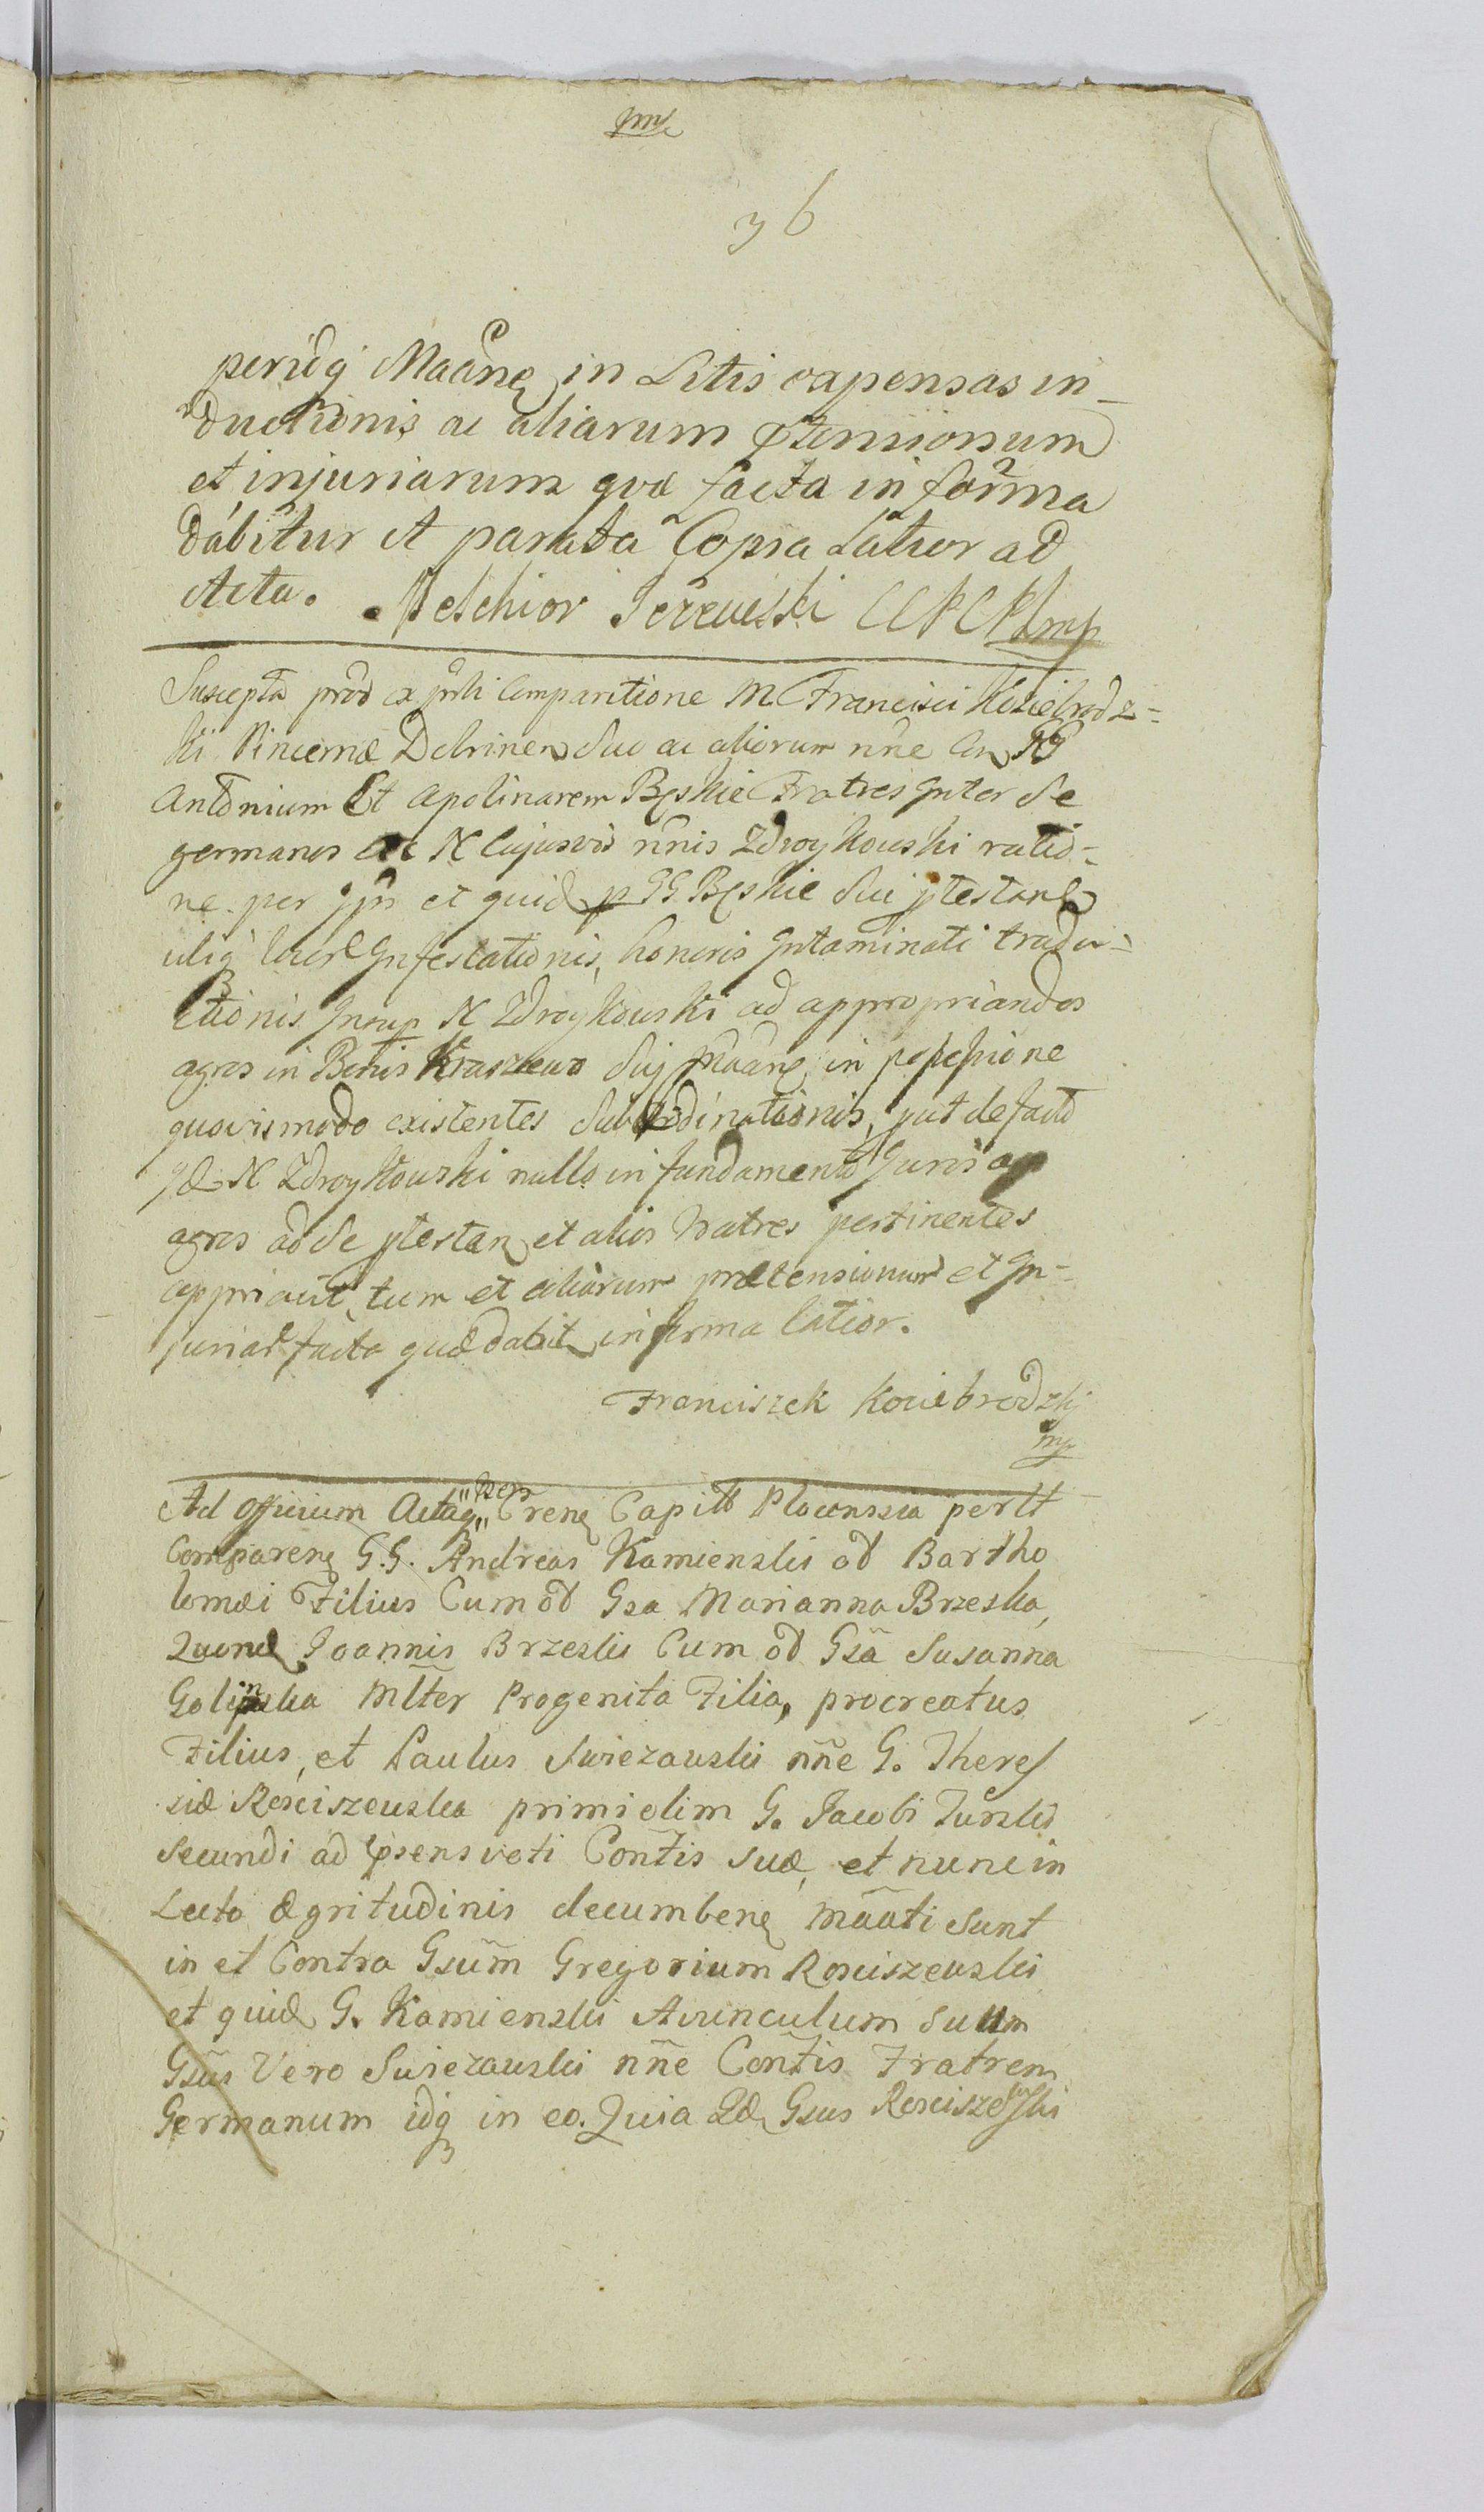 36
in Litis expensas in-
ductionis ac aliarum ptensionum
et injuriarum qvæ facta in forma
dabitur et parata Copia Latior ad
Acta. Melchior
Suscepta Comparitione M Francisci Koziebrodz=
ki Pincernæ Dobrinen Suo ac aliorum nñe
Antonium Et Apolinarem Bęskie Fratres Inter Se
germanos Ac N Cujusvis nñis Zdroykowski ratio=
ne per et quid p GG Bęskie Sui
Infestationis, honoris Intaminati tradu=
ctionis Insup N Zdroykowski ad appropriandos
agros in Bonis Kraszewo Suj in possessione
quovismodo existentes Subordinationis, put de facto
N Zdroykowski nullo in fundamento Juris
agros ad Se et alios Fratres pertinentes
appriavit, tum et aliarum prætensionum et In=
juriar facta quæ dabit in forma latior.
Franciszek Koziebrodzkj
mp
Ad Officium Capit Plocensia
Comparenȩ G.G. Andreas Kamienski od Bartho
lomæi Filius Cum od Gsa Marianna Brzeska,
Joannis Brzeski Cum od Gsa Susanna
Golinska Mlter Progenita Filia, procreatus
Filius, et Paulus Swiezawski nñe G. There
siæ Rosciszewska primi olim G. Jacobi Turski
Secundi ad psens voti Contis suæ, et nunc in
Lecto ægritudinis decumbenȩ mãati sunt
in et Contra Gsum Gregorium Rosciszewski
et quid G. Kamienski Avunculum suum
Gsus Vero Swiezawski nñe Contis Fratrem
Germanum idq in eo. Quia Gsus Rosciszewski